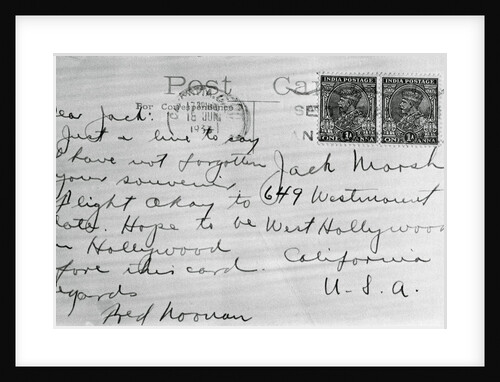 Post Ca
For Correspondence
18 JUN
INDIA POSTAGE
INDIA POSTAGE
ear Jack:
Just a line to say
have not forgotten
your souvenir,
Flight Okay to
date. Hope to be
n Hollywood
fore this card.
egards
Fred Noonan
Jack Marsh
649 Westmount
West Hollywood
California
U.S.A.